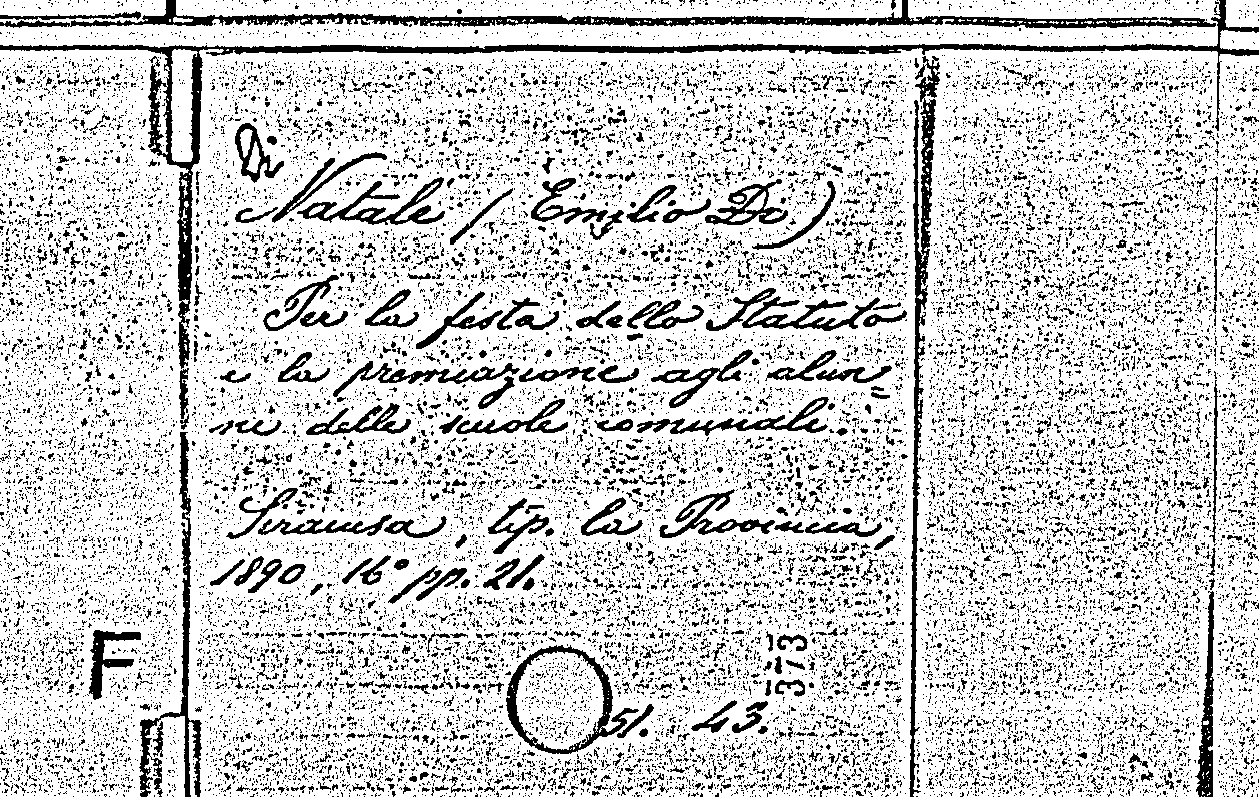 Di
Natale (Emilio Di)
Per la festa dello Statuto
e la premiazione agli alun=
ni delle scuole comunali.
Siracusa, tip. la Provincia,
1890, 16° pp. 21.
F
373
51. 43.